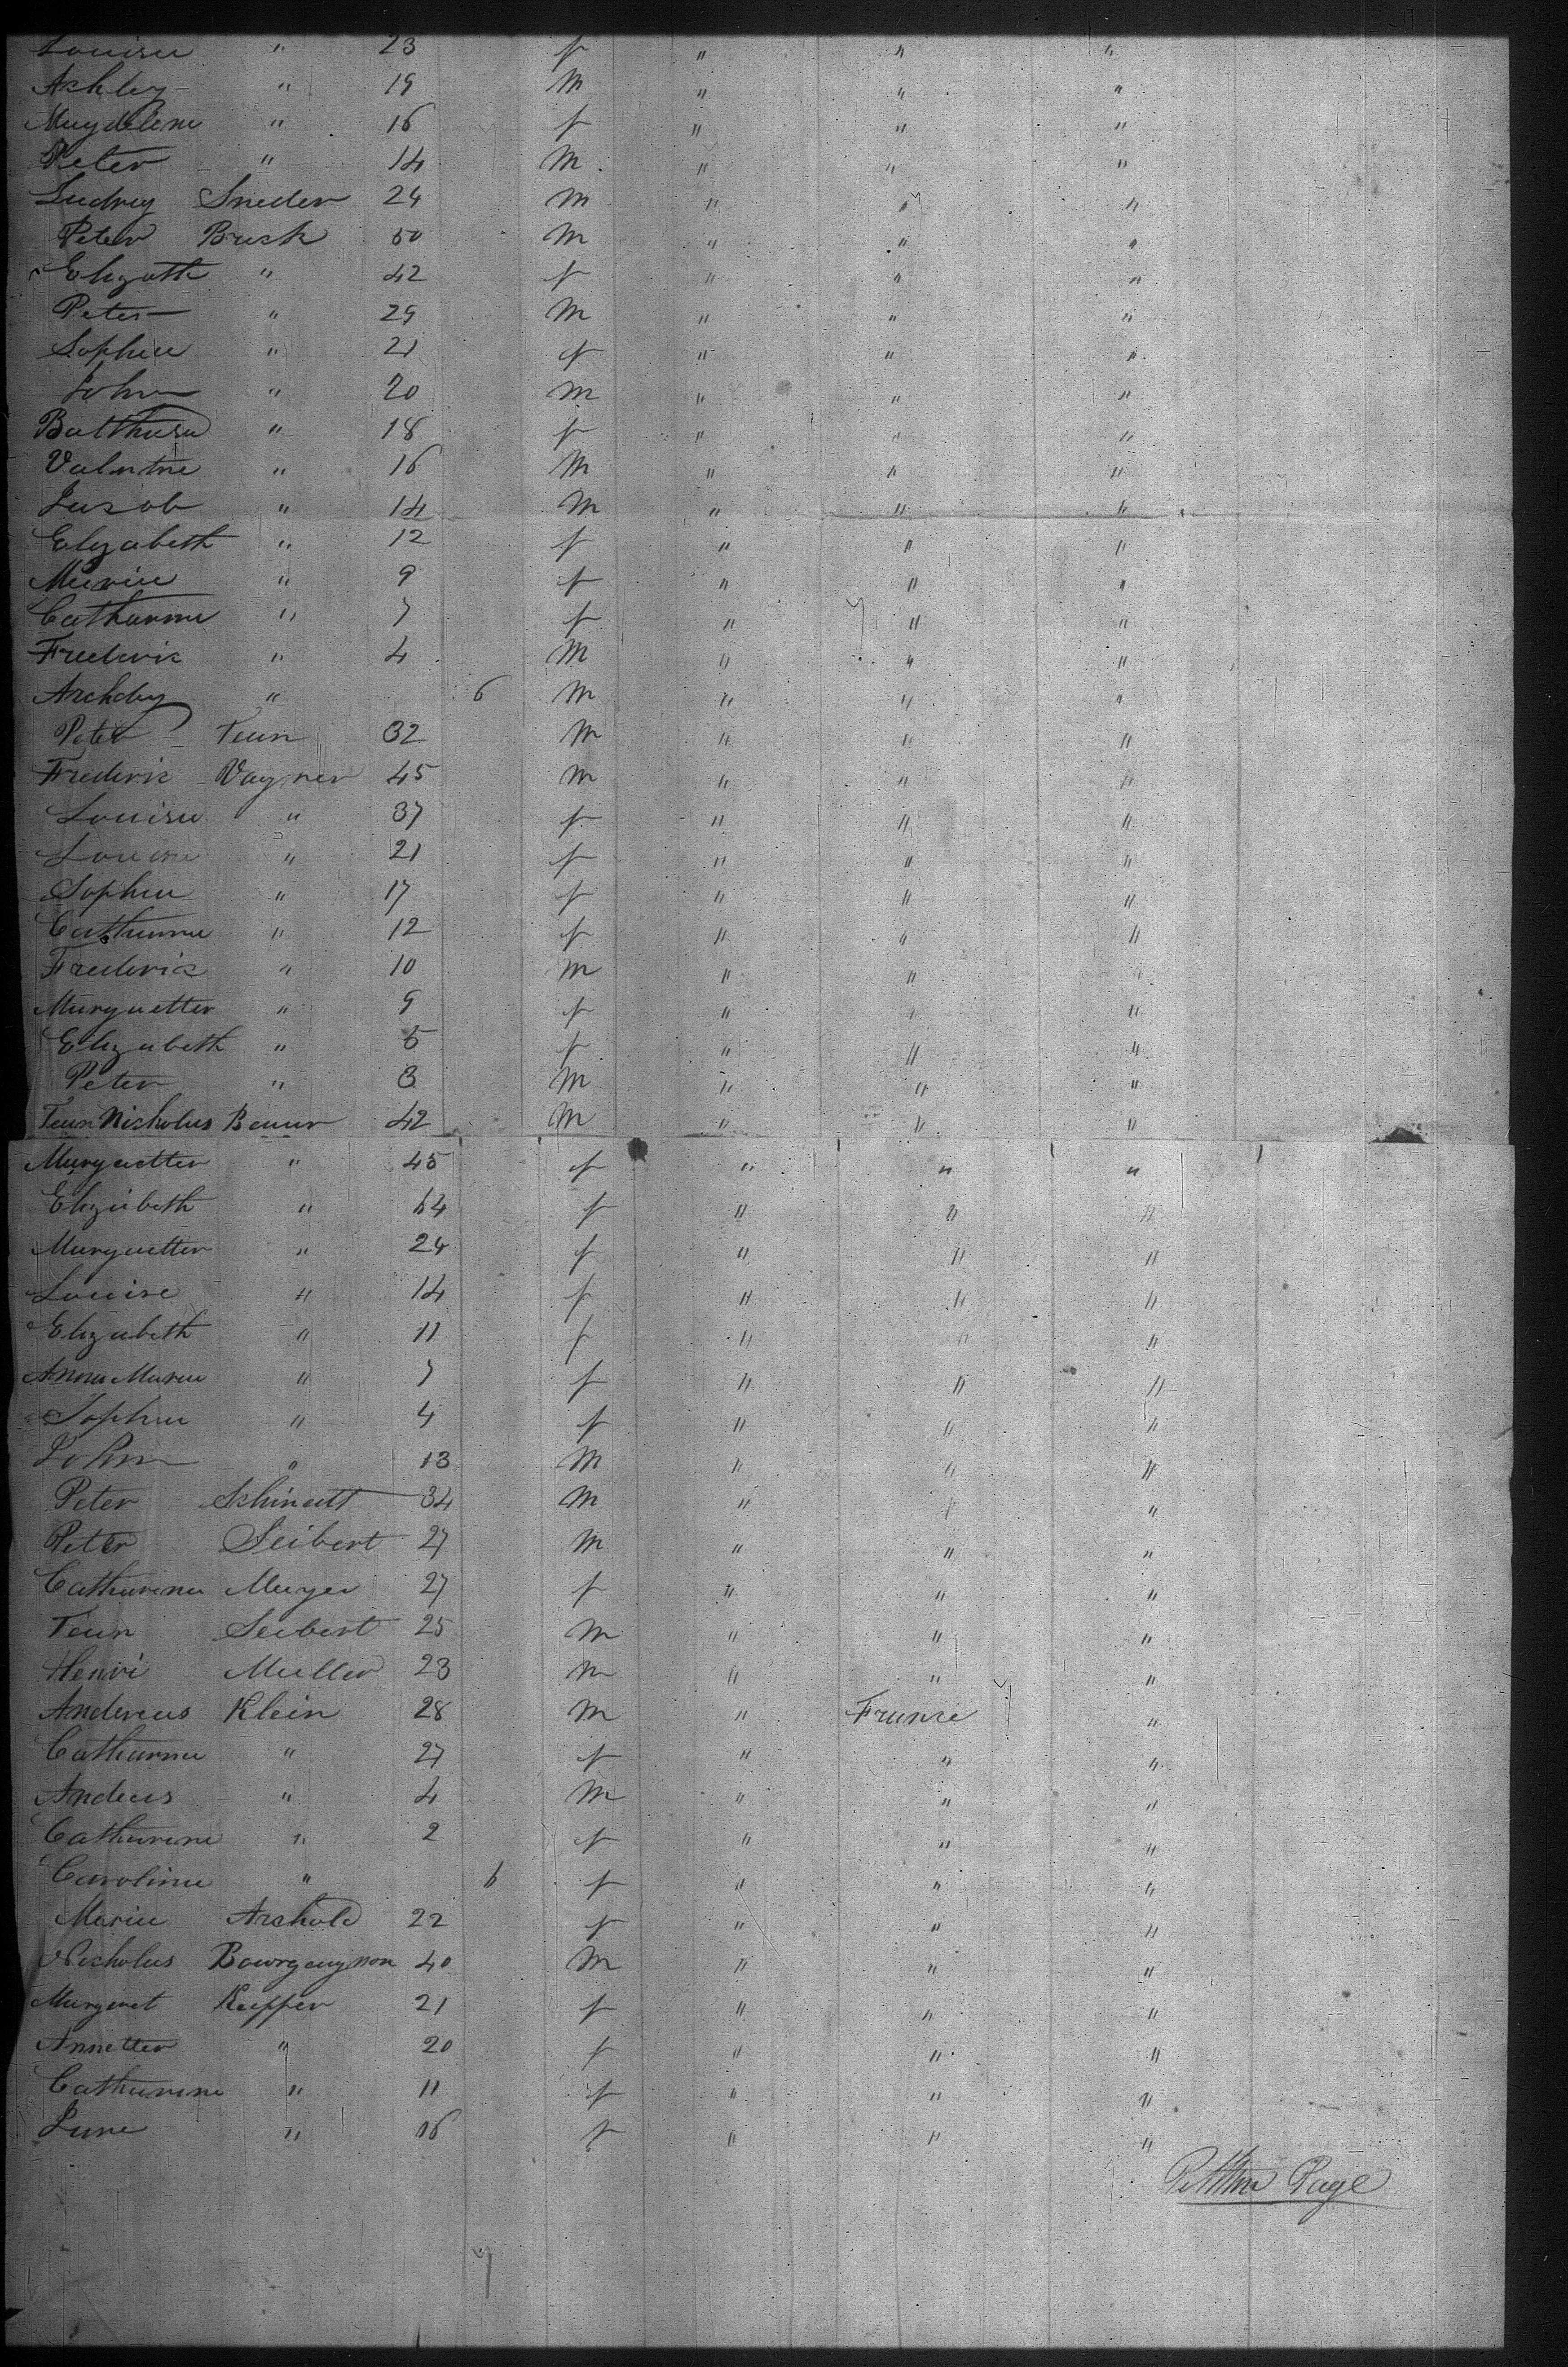 Louisa " 23 f " " "
Ashley " 19 m " " "
Magdelene " 16 f " " "
Peter " 14 m " " "
Ludvig Snider 24 m " " "
Peter Busk 50 m " " "
Elizath " 42 f " " "
Peter " 29 m " " "
Sophia " 21 f " " "
John " 20 m " " "
Balthasa " 18 f " " "
Valntne " 16 m " " "
Jacob " 14 m " " "
Elizabeth " 12 f " " "
Maria " 9 f " " "
Catharine " 7 f " " "
Frederic " 4 m " " "
" 6 m " " "
Peter Tean 32 m " " "
Frederic Vagner 45 m " " "
Louisa " 37 f " " "
Louisa " 21 f " " "
Sophia " 17 f " " "
Catharina " 12 f " " "
Frederic " 10 m " " "
Marguetter " 9 f " " "
Elizabeth " 5 f " " "
Peter " 3 m " " "
Tean Nicholas Bauur 42 m " " "
Marguetter " 45 f " " "
Elizabeth " 64 f " " "
Marguetter " 24 f " " "
Louise " 14 f " " "
Elizabeth " 11 f " " "
Anna Maria " 7 f " " "
Sophia " 4 f " " "
John " 13 m " " "
Peter Schmatt 34 m " " "
Peter Seibert 27 m " " "
Catharina Mayer 27 f " " "
Tean Seibert 25 m " " "
Henri Muller 23 m " " "
Andreas Klein 28 m " France "
Catharina " 27 f " " "
Andreas " 4 m " " "
Catharine " 2 f " " "
Carolina " 6 f " " "
Maria Archold 22 f " " "
Nicholas Bourgougnon 40 m " " "
Margaret Kupper 21 f " " "
Annetter " 20 f " " "
Catharine " 11 f " " "
Jane " 16 f " " "
Page